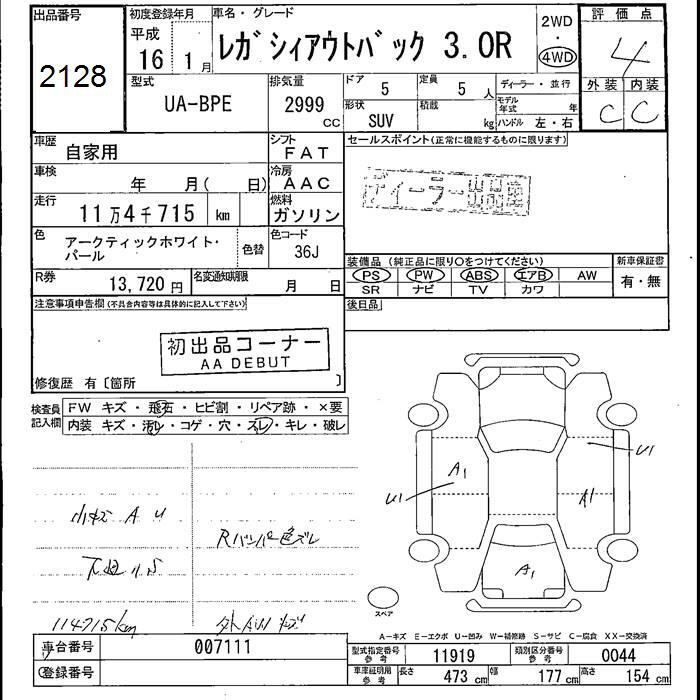 出品番号
2128
初度登録年月
平成
16 1 月
車名・グレード
レガシィアウトバック 3.0R
2WD
・
4WD
評価点
4
外装 内装
C C
型式
UA-BPE
排気量
2999
CC
ドア
5
定員
5 人
形状
SUV
積載
kg
ディーラー・並行
モデル年式 年
ハンドル 左・右
車歴
自家用
シフト
FAT
セールスポイント(正常に機能するものに限ります)
車検
年 月( 日)
冷房
AAC
ディーラー出品車
走行
11万4千715 km
燃料
ガソリン
色
アークティックホワイト・
パール
色替
色コード
36J
装備品 (純正品に限り〇をつけてください)
新車保証書
PS PW ABS エアB AW
有・無
SR ナビ TV カワ
R券
13,720 円
名変通知期限
月 日
後日品
注意事項申告欄(不具合内容等は具体的に記入して下さい)
初出品コーナー
AA DEBUT
修復歴 有〔箇所 〕
検査員
記入欄
FW キズ・飛石・ヒビ割・リペア跡・×要
内装 キズ・汚レ・コゲ・穴・スレ・キレ・破レ
U1
A1
U1
A1
A1
小キズ A U
Rバンパー色ズレ
114715km
スペア
A-キズ E-エクボ U-凹み W-補修跡 S-サビ C-腐食 XX-交換済
車台番号
007111
登録番号
型式指定番号
参考
11919
類別区分番号
参考
0044
車庫証明用
参考
長さ 473 cm 幅 177 cm 高さ 154 cm